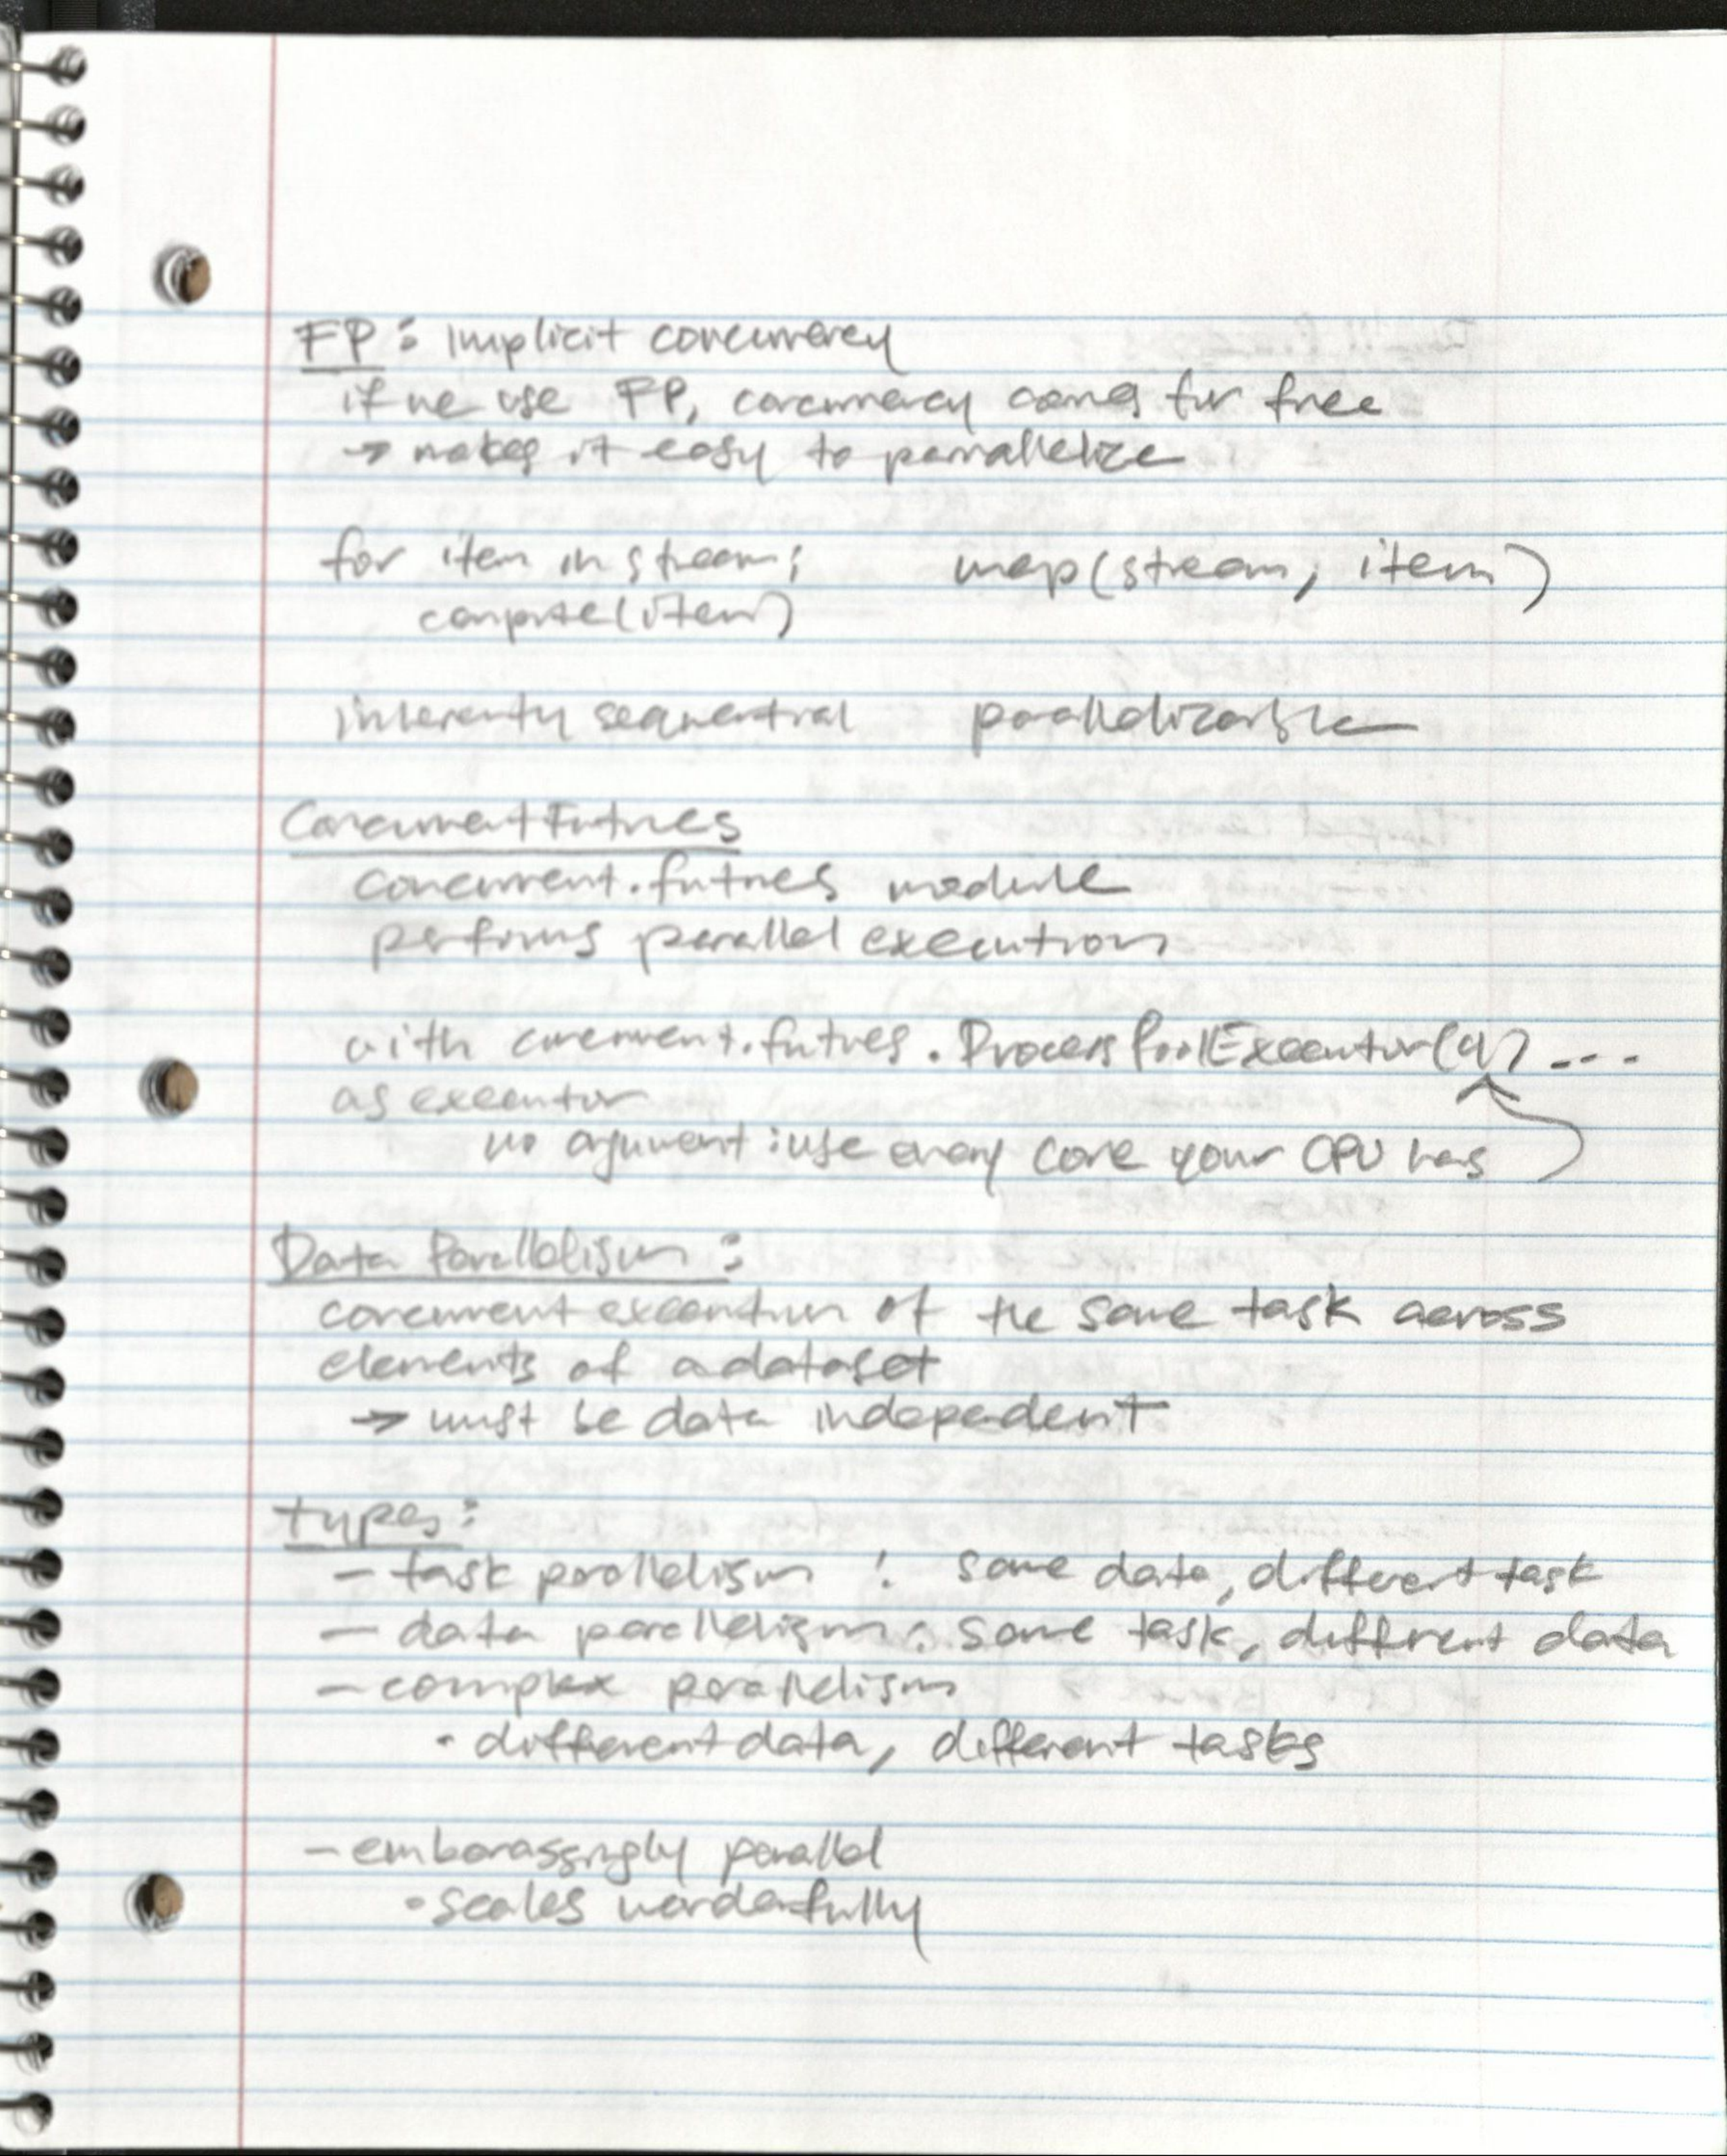 FP: Implicit concurrency
if we use FP, concurrency comes for free
→ makes it easy to parrallelize
for item in stream: map(stream, item)
compute(item)
inherently sequential parallelizable
Concurrent Futures
concurrent.futures module
performs parallel execution
with concurrent.futures.ProcessPoolExecutor(4) ...
as executor
no argument: use every core your CPU has
Data Parallelism:
concurrent execution of the same task across
elements of a dataset
→ must be data independent
types:
- task parallelism : same data, different task
- data parallelism: same task, different data
- complex parallelism
• different data, different tasks
- embarassingly parallel
• scales wonderfully